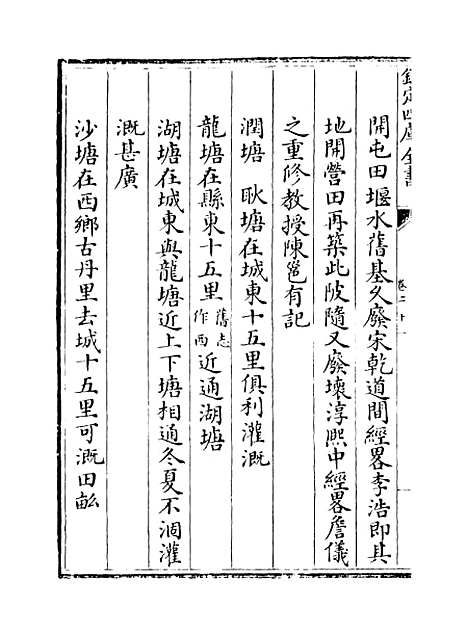 欽定四庫全書
卷二十
開屯田堰水舊基久廢宋乾道間經畧李浩即其
地開營田再築此陂隨又廢壞淳熙中經畧詹儀
之重修教授陳邕有記
潤塘　耿塘在城東十五里俱利灌溉
龍塘在縣東十五里舊志作西近通湖塘
湖塘在城東與龍塘近上下塘相通冬夏不涸灌
溉甚廣
沙塘在西鄉古丹里去城十五里可溉田畝